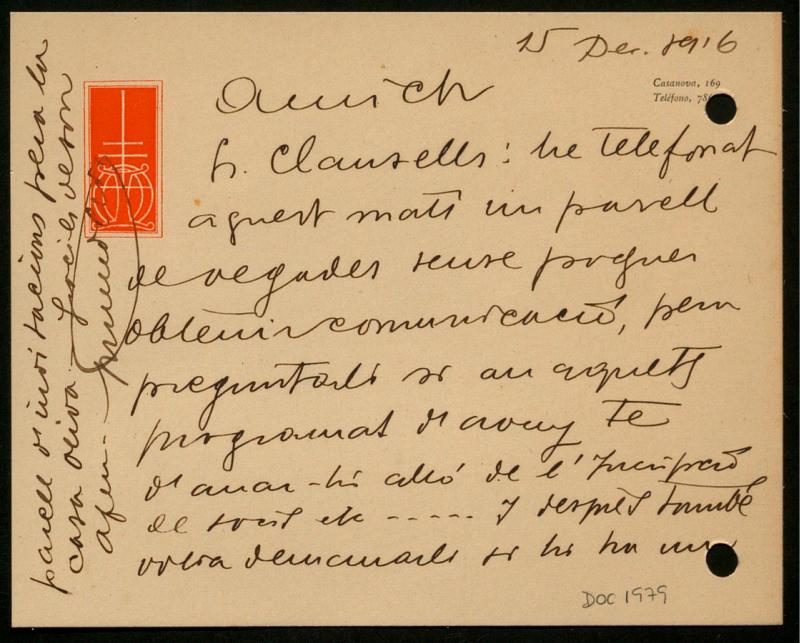 15 Des. 1916
Casanova, 169
Teléfono, 78
Amich
Sr. Clausells: he telefonat
aquest matí un parell
de vegades sense poguer
obtenir comunicació, pera
preguntarli si an aquets
programat d'avuy te
d'anar-hi alló de l'Inscripció
de socis etc ----- y després també
volia demanarli si hi ha un
parell d'invitacions pera la
casa Oliva.
afm.
DOC 1979